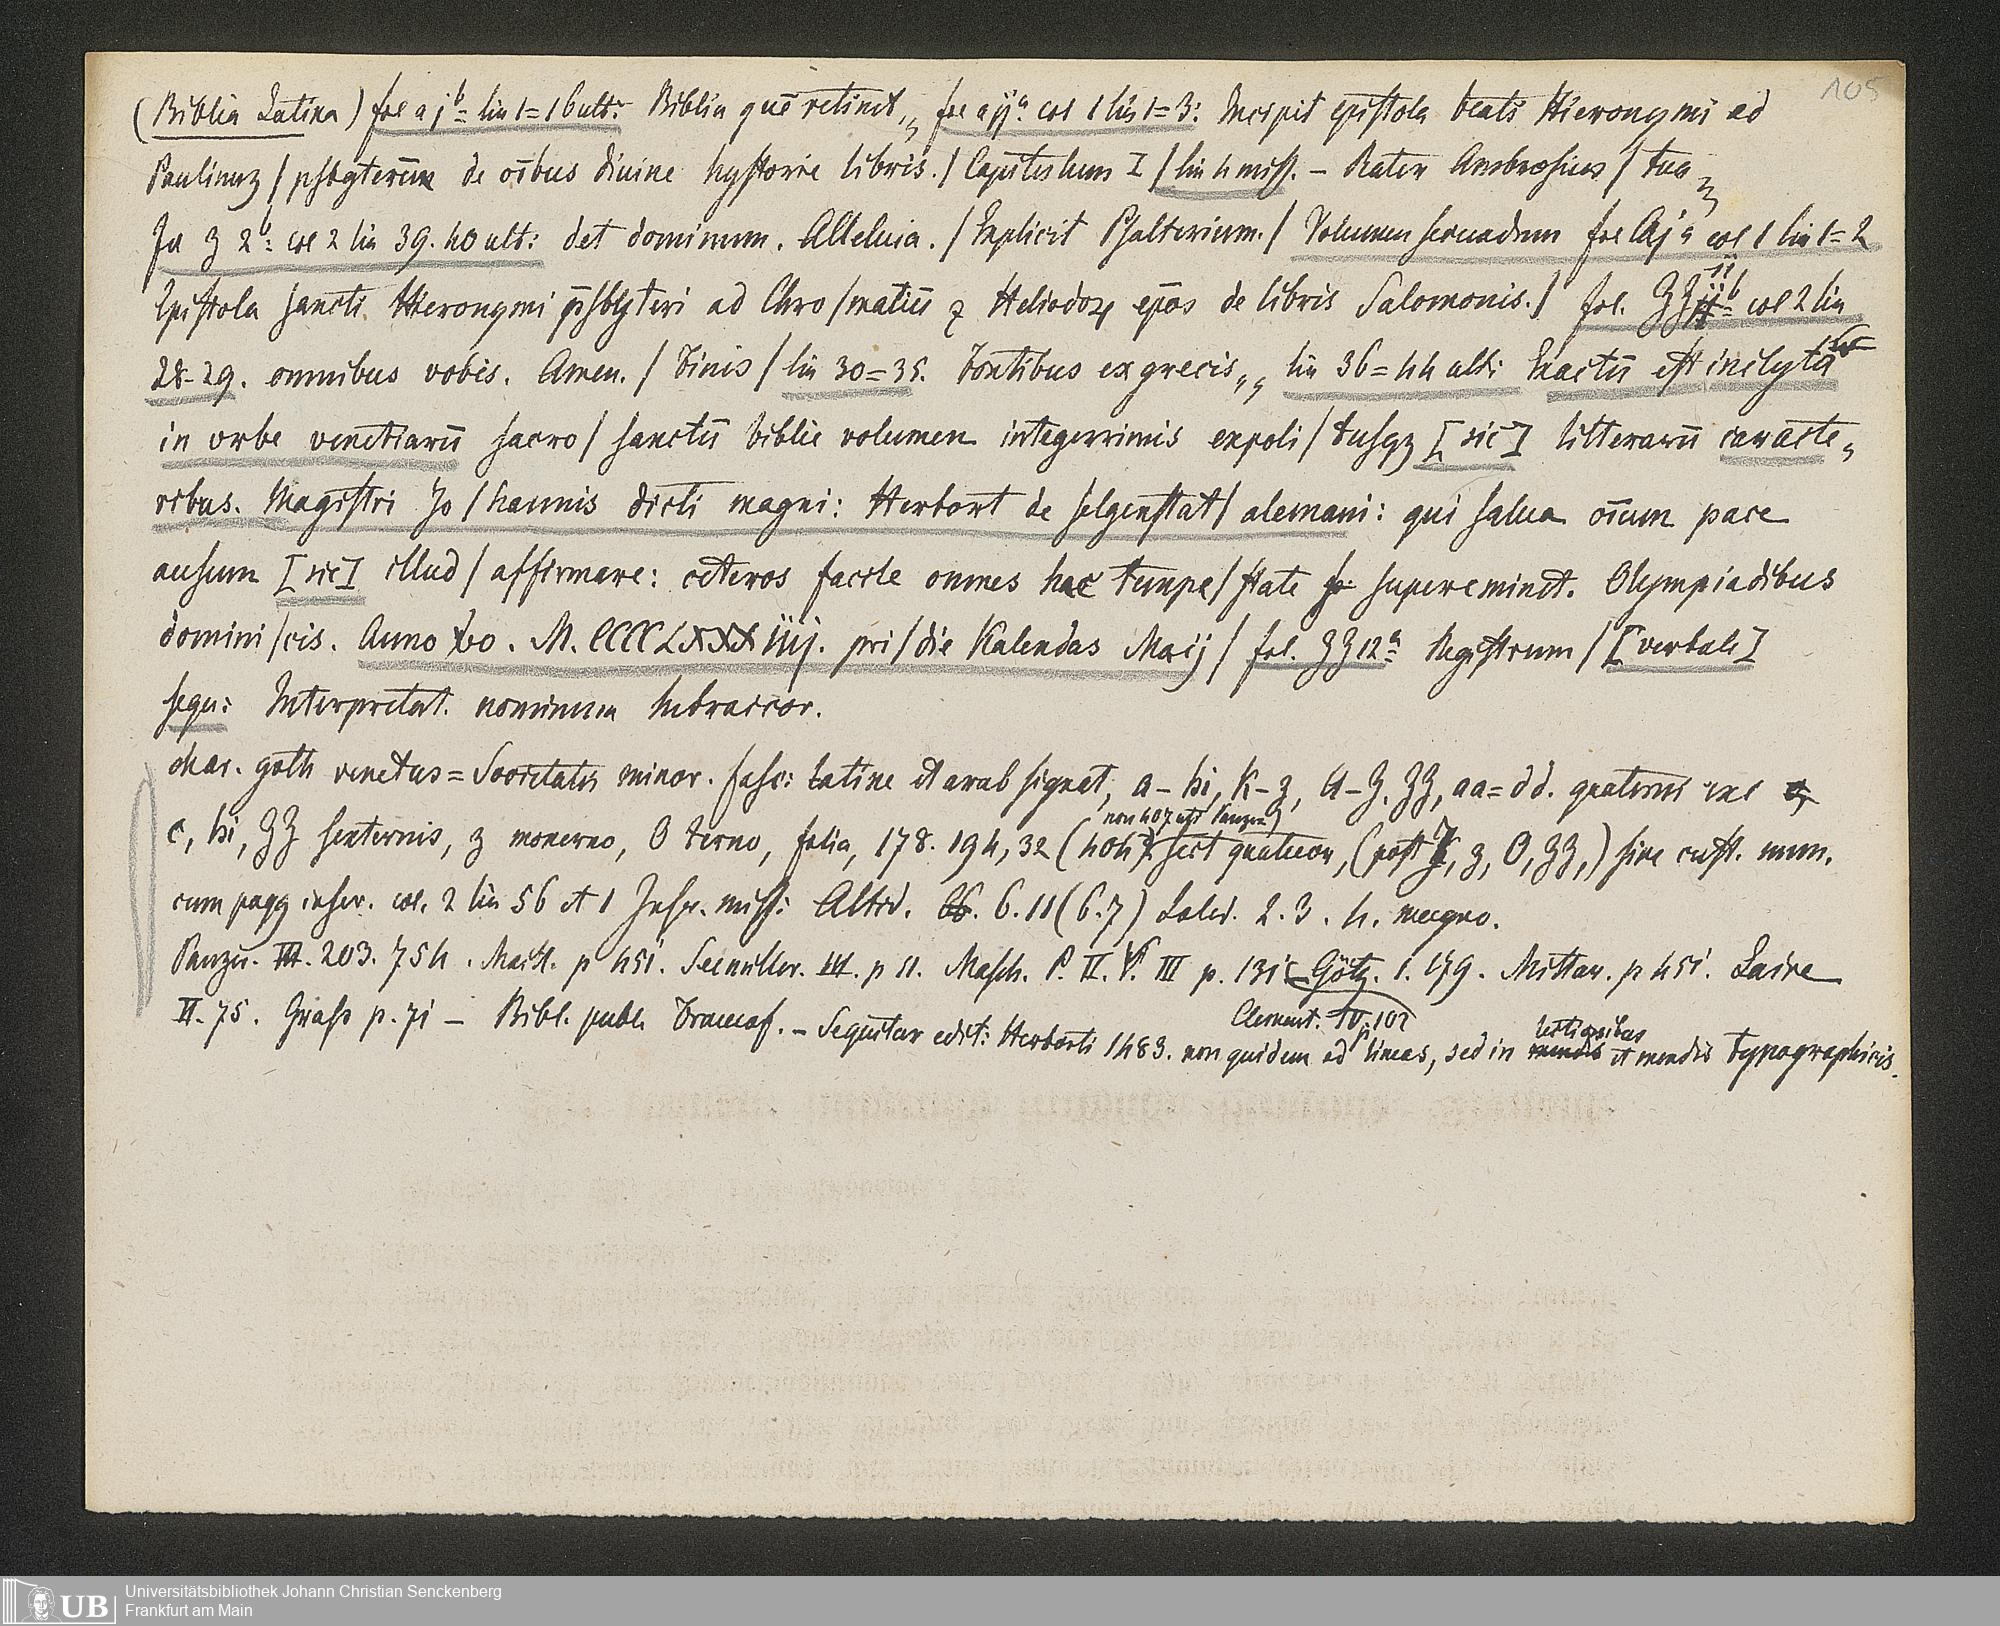 105
(Biblia Latina) fol a jb= lin 1=16 ult: Biblia quē retinet,, fol a ija. col 1 lin 1=3: Incipit epistola beati Hieronymi ad
Paulinuz / psbyterum de oībus diuine hystorie libris. / Capitulum I / lin 4 miss. – Rater Ambrosius / tua
In z 2b: col 2 lin 39. 40 ult: det dominum. Alleluia. / Explicit Psalterium. / Volumen secundum fol Aja col 1 lin 1=2
Epistola sancti Hieronymi p̄sbyteri ad Chro / matiū z Heliodoꝝ ep̄os de libris Salomonis. / fol. ZZ 11b= col 2 lin
28-29. omnibus vobis. Amen. / Finis / lin 30=35. Fontibus ex grecis,, lin 36=44 ult: Exactū est inclyta
in vrbe venetiarū sacro / sanctū biblie volumen integerrimis expoli / tusqz [sic] litterarū caracte,,
ribus. Magistri Jo / hannis dicti magni: Herbort de selgenstat / alemani: qui salua oīum pace
ausum [sic] illud / affirmare: ceteros facile omnes hac tempe / state supereminet. Olympiadibus
domini / cis. Anno vo. M. CCCCLXXXiiij. pri / die Kalendas Maij / fol. ZZ 12a= Registrum / [verbale]
sequ: Interpretat. nominum hebraicor.
char. goth venetus = Societatis minor. fasc: latine et arab signat, a – hi, K – z, A – Z, ZZ, aa = dd. quaternis exc
c, hi, ZZ sexternis, z monerno, O terno, folia, 178. 194, 32 (404) sect quatuor, (post z, O, ZZ,) sine cust. num.
non 407 ut Panzer)
cum pagg inscr. col. 2 lin 56 et 1 Inscr. miss: Altit. 6. 11 (6.7) Latit. 2. 3. 4. magno.
Panzer. III. 203. 754. Mait. p 451. Seemiller. III. p 11. Masch. P. II. V. III p. 131 Götz. 1. 179. Mittar. p 451. Laire
II. 75. Grass p. 71 – Bibl. publ. Francof. – Sequitur edit: Herborti 1483. non quidem ad lineas, sed in lectionibus et mendis typographicis.
Clement. IV. p. 102
UB
Universitätsbibliothek Johann Christian Senckenberg
Frankfurt am Main